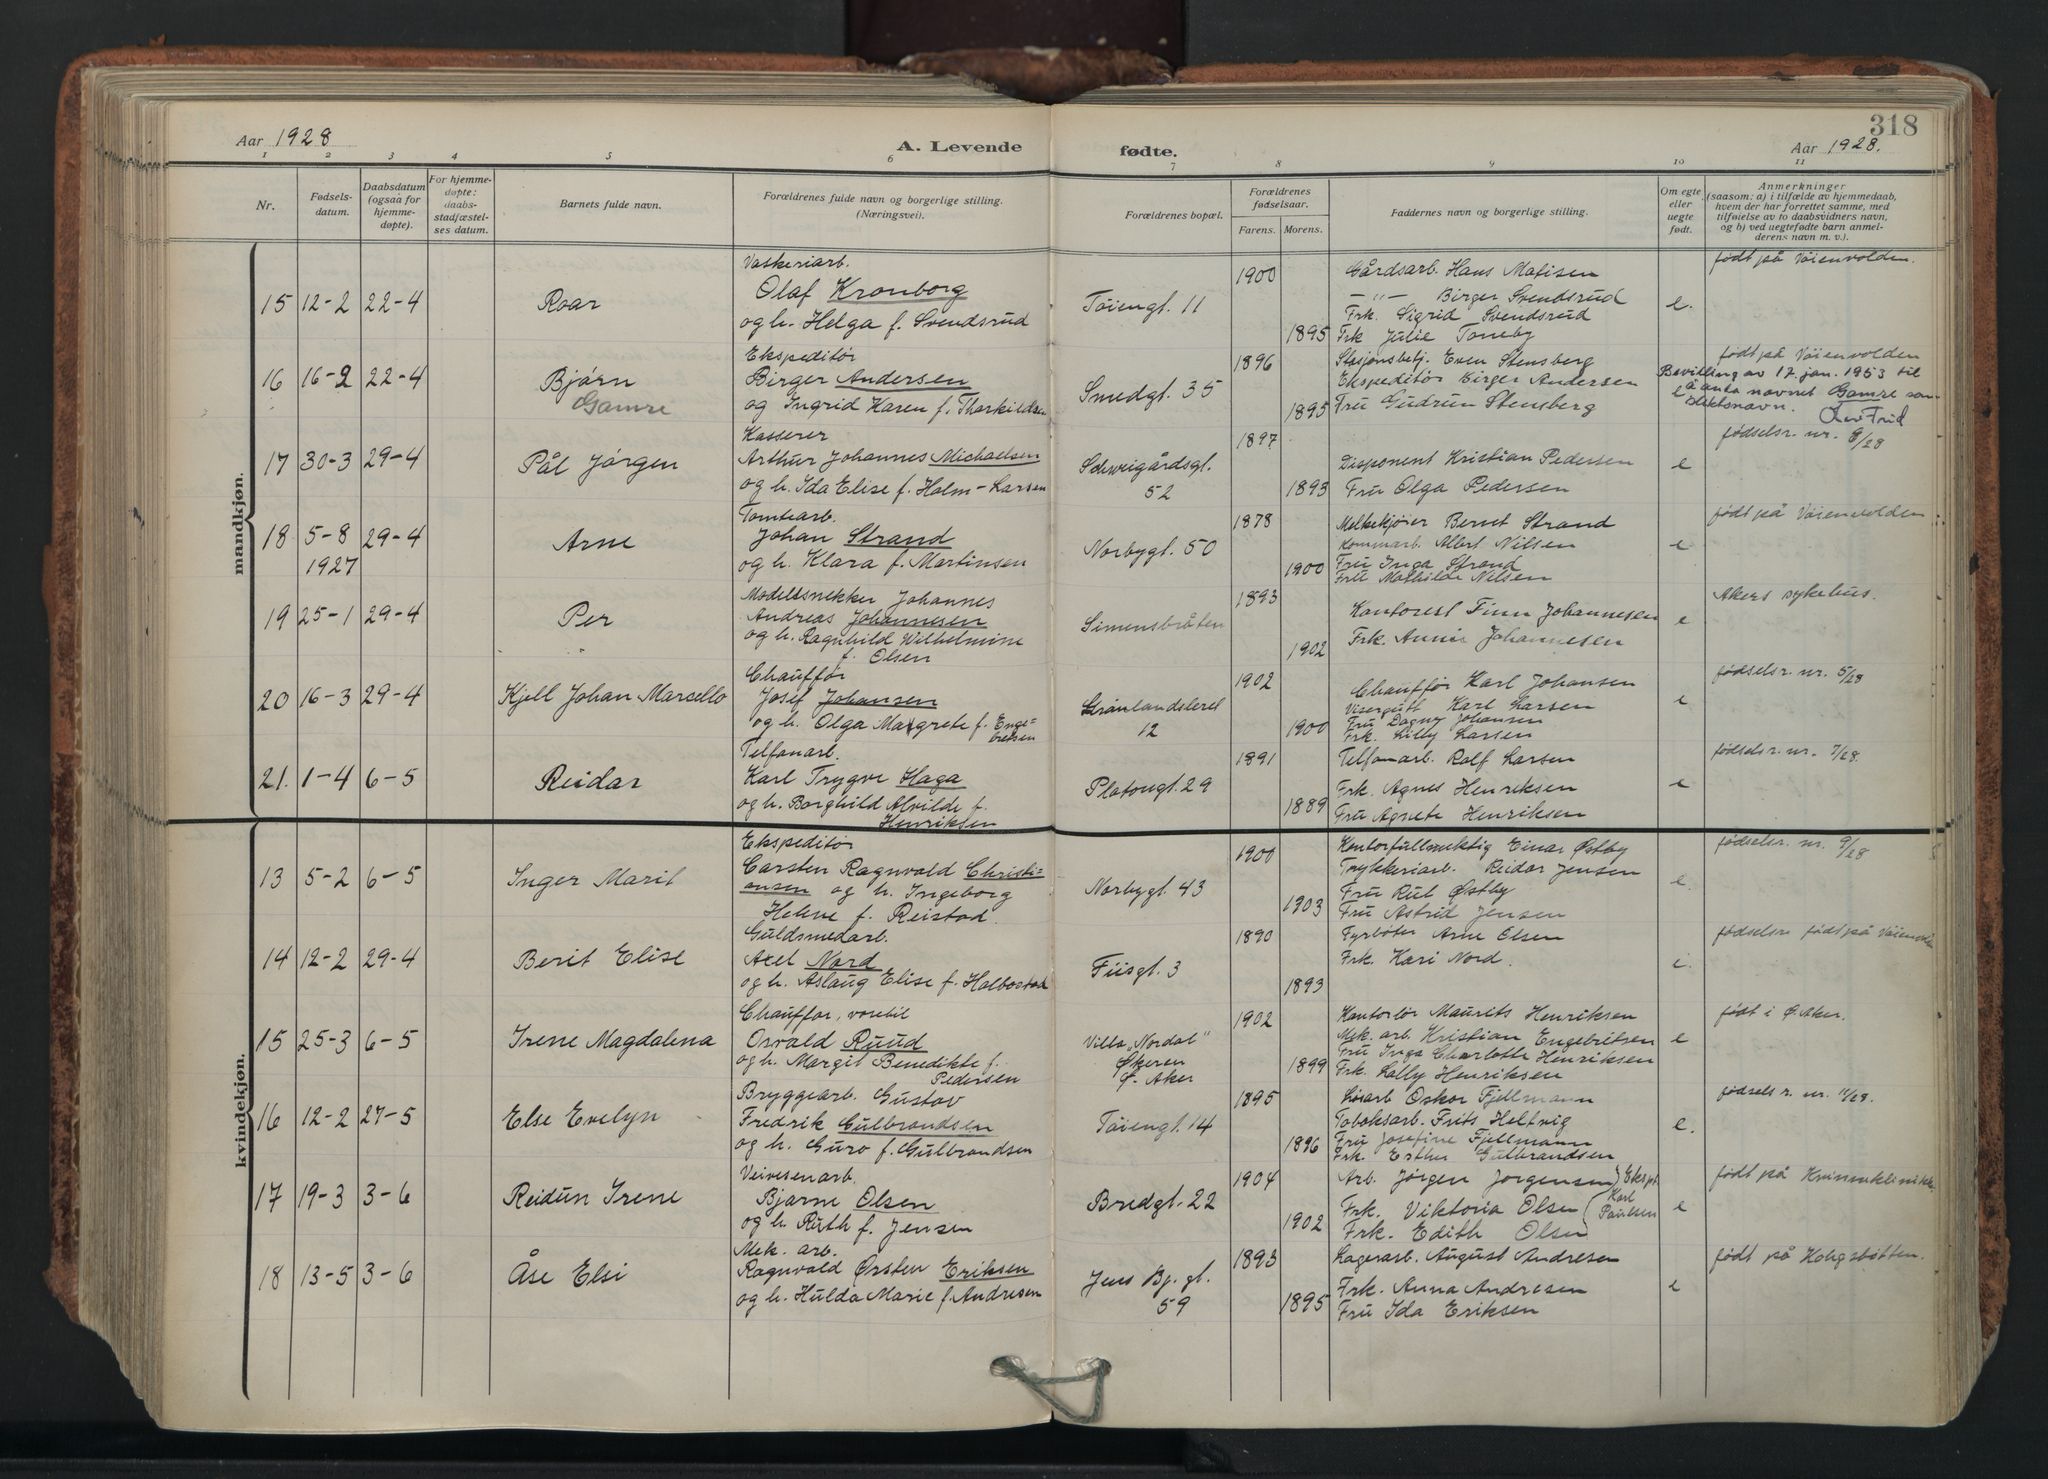 318
Aar 1928
A. Levende
fødte.
Aar 1928.
1 2 3 4 5 6 7 8 9 10 11
Nr.
Fødsels-
datum.
Daabsdatum
(ogsaa for
hjemme-
døpte).
For hjemme-
døpte:
daabs-
stadfæstel-
ses datum.
Barnets fulde navn.
Forældrenes fulde navn og borgerlige stilling.
(Næringsvei).
Forældrenes bopæl.
Forældrenes
fødselsaar.
Farens. Morens.
Faddernes navn og borgerlige stilling.
Om egte
eller
uegte
født.
Anmerkninger
(saasom: a) i tilfælde av hjemmedaab,
hvem der har forrettet samme, med
tilføielse av to daabsvidners navn,
og b) ved uegtefødte barn anmel-
derens navn m. v.).
mandkjøn.
15 12-2 22-4
Roar
Vaskeriarb.
Olaf Kronborg
og h. Helga f. Svendsrud
Töiengt. 11
1900
1895
Gårdsarb. Hans Matisen
—"— Birger Svendsrud
Frk. Sigrid Svendsrud
Frk Julie Toneby
e.
født på Vöienvolden.
16 16-2 22-4
Bjørn
Gamre
Ekspeditør
Birger Andersen
og Ingrid Karen f. Thorkildsen
Smedgt. 35
1896
1895
Stasjonsbetj. Even Stensberg
Ekspeditör Birger Andersen
Fru Gudrun Stensberg
e
født på Vöienvolden
Bevilling av 17. jan. 1953 til
å anta navnet Gamre som
slektsnavn.
17 30-3 29-4
Pål Jörgen
Kasserer
Arthur Johannes Michaelsen
og h. Ida Elise f. Holm-Larsen
Schweigårdsgt.
52
1897
1893
Disponent Kristian Pedersen
Fru Olga Pedersen
e
fødselsr. nr. 8/28
18 5-8 29-4
1927
Arne
Tomtearb.
Johan Strand
og h. Klara f. Martinsen
Norbygt. 50
1878
1900
Melkekjører Bernt Strand
Kommarb. Albert Nilsen
Fru Inga Strand
Fru Mathilde Nilsen
e
født på Vöienvolden
19 25-1 29-4
Per
Modellsnekker Johannes
Andreas Johannesen
og h. Ragnhild Wilhelmine
f. Olsen
Simensbråten
1893
1902
Kontorist Finn Johannesen
Frk. Annie Johannesen
e
Akers sykehus.
20 16-3 29-4
Kjell Johan Marcello
Chauffør
Josef Johansen
og h. Olga Margrete f. Enge-
bretsen
Grønlandsleret
12
1902
1900
Chauffør Karl Johansen
Visergutt Karl Larsen
Fru Dagny Johansen
Frk. Lilly Larsen
e
fødselsr. nr. 5/28
21. 1-4 6-5
Reidar
Telfonarb.
Karl Trygve Haga
og h. Borghild Alvilde f.
Henriksen
Platougt. 29
1891
1889
Telfonarb. Rolf Larsen
Frk. Agnes Henriksen
Fru Agnete Henriksen
e
fødselsr. nr. 7/28.
kvindekjøn.
13 5-2 6-5
Inger Marit
Ekspeditør
Carsten Ragnvald Christi-
ansen og h. Ingeborg
Helene f. Reistad.
Norbygt. 43
1900
1903
Kontorfullmektig Einar Østby
Trykkeriarb. Reidar Jensen
Fru Rut Østby
Fru Astrid Jensen
e.
fødselsr. nr. 9/28
14 12-2 29-4
Berit Elise
Guldsmedarb.
Axel Nord
og h. Aslaug Elise f. Holbostad
Friisgt. 3
1890
1893
Fyrbøter Arne Olsen
Frk. Kari Nord.
fødselsr født på Vöienvol
15 25-3 6-5
Irene Magdalena
Chauffør, varebil
Osvald Ruud
og h. Margit Benedikte f.
Pedersen
Villa „Nordal"
Økeren
Ø. Aker
1902
1899
Kontorør Maurits Henriksen
Mek. arb. Kristian Engebretsen
Fru Inga Charlotte Henriksen
Frk. Lally Henriksen
e
født i Ø. Aker.
16 12-2 27-5
Else Evelyn
Bryggearb. Gustav
Fredrik Gulbrandsen
og h. Guro f. Gulbrandsen
Töiengt. 14
1895
1896
Oskar Fjellmann
Tobaksarb. Frits Heltvig
Fru Josefine Fjellmann
Frk. Esther Gulbrandsen
e.
fødsels r. nr. 11/28.
17 19-3 3-6
Reidun Irene
Veivesenarb.
Bjarne Olsen
og h. Ruth f. Jensen
Bredgt. 22
1904
1902
Arb. Jörgen Jorgensen } Eksp.
Frk. Viktoria Olsen ( Karl
Paulsen
Frk. Edith Olsen
e
født på Kvinneklinikk
18 13-5 3-6
Åse Elsi
Mek. arb.
Ragnvald Ørsten Eriksen
og h. Hulda Marie f. Andresen
Jens Bj. gt.
59
1893
1895
Lagerarb. August Andresen
Frk. Anna Andresen
Fru Ida Eriksen
e
født på Kolgsbotten.